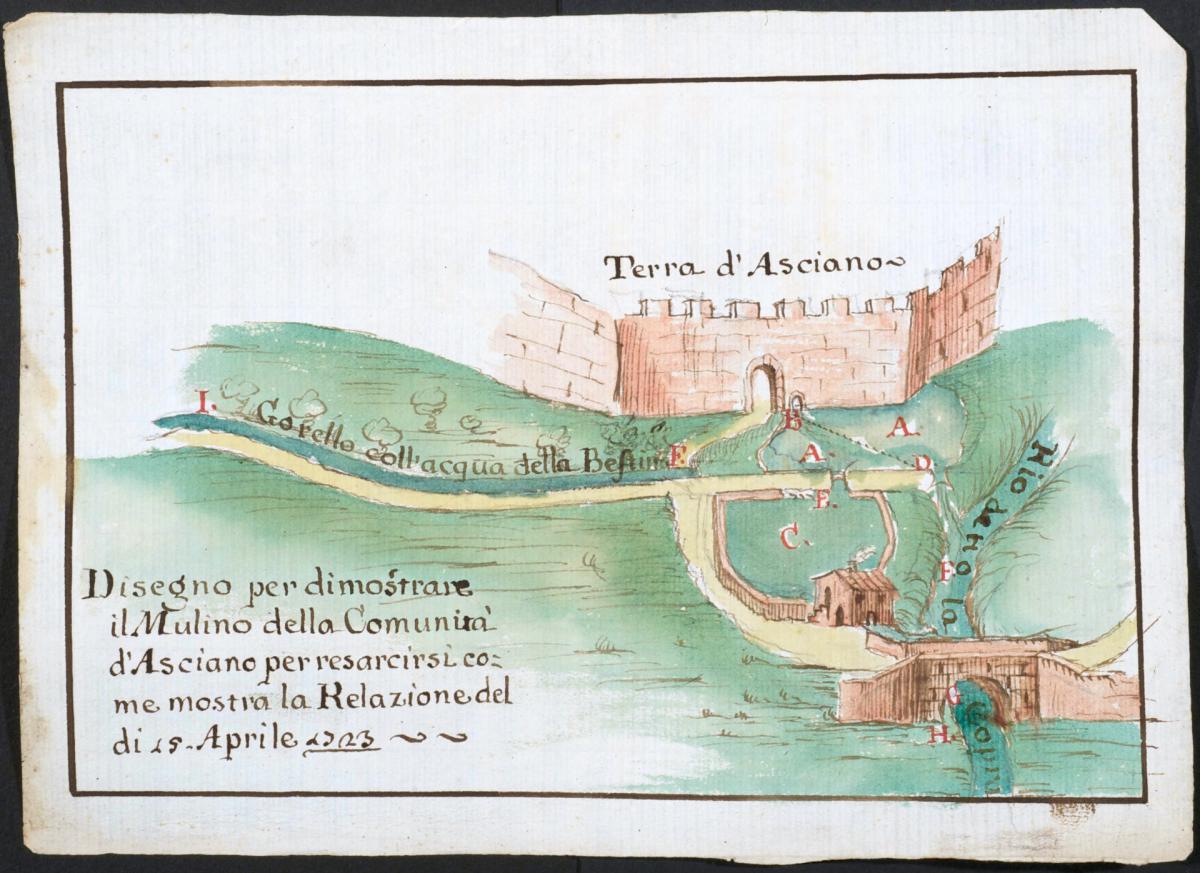 Terra d'Asciano
I.
Gorello coll'acqua della Bestina
F.
B
A.
A.
D
E.
C.
F
Rio detto la Copra
G
H.
Disegno per dimostrare
il Mulino della Comunità
d'Asciano per resarcirsi co=
me mostra la Relazione del
di 15. Aprile 1723